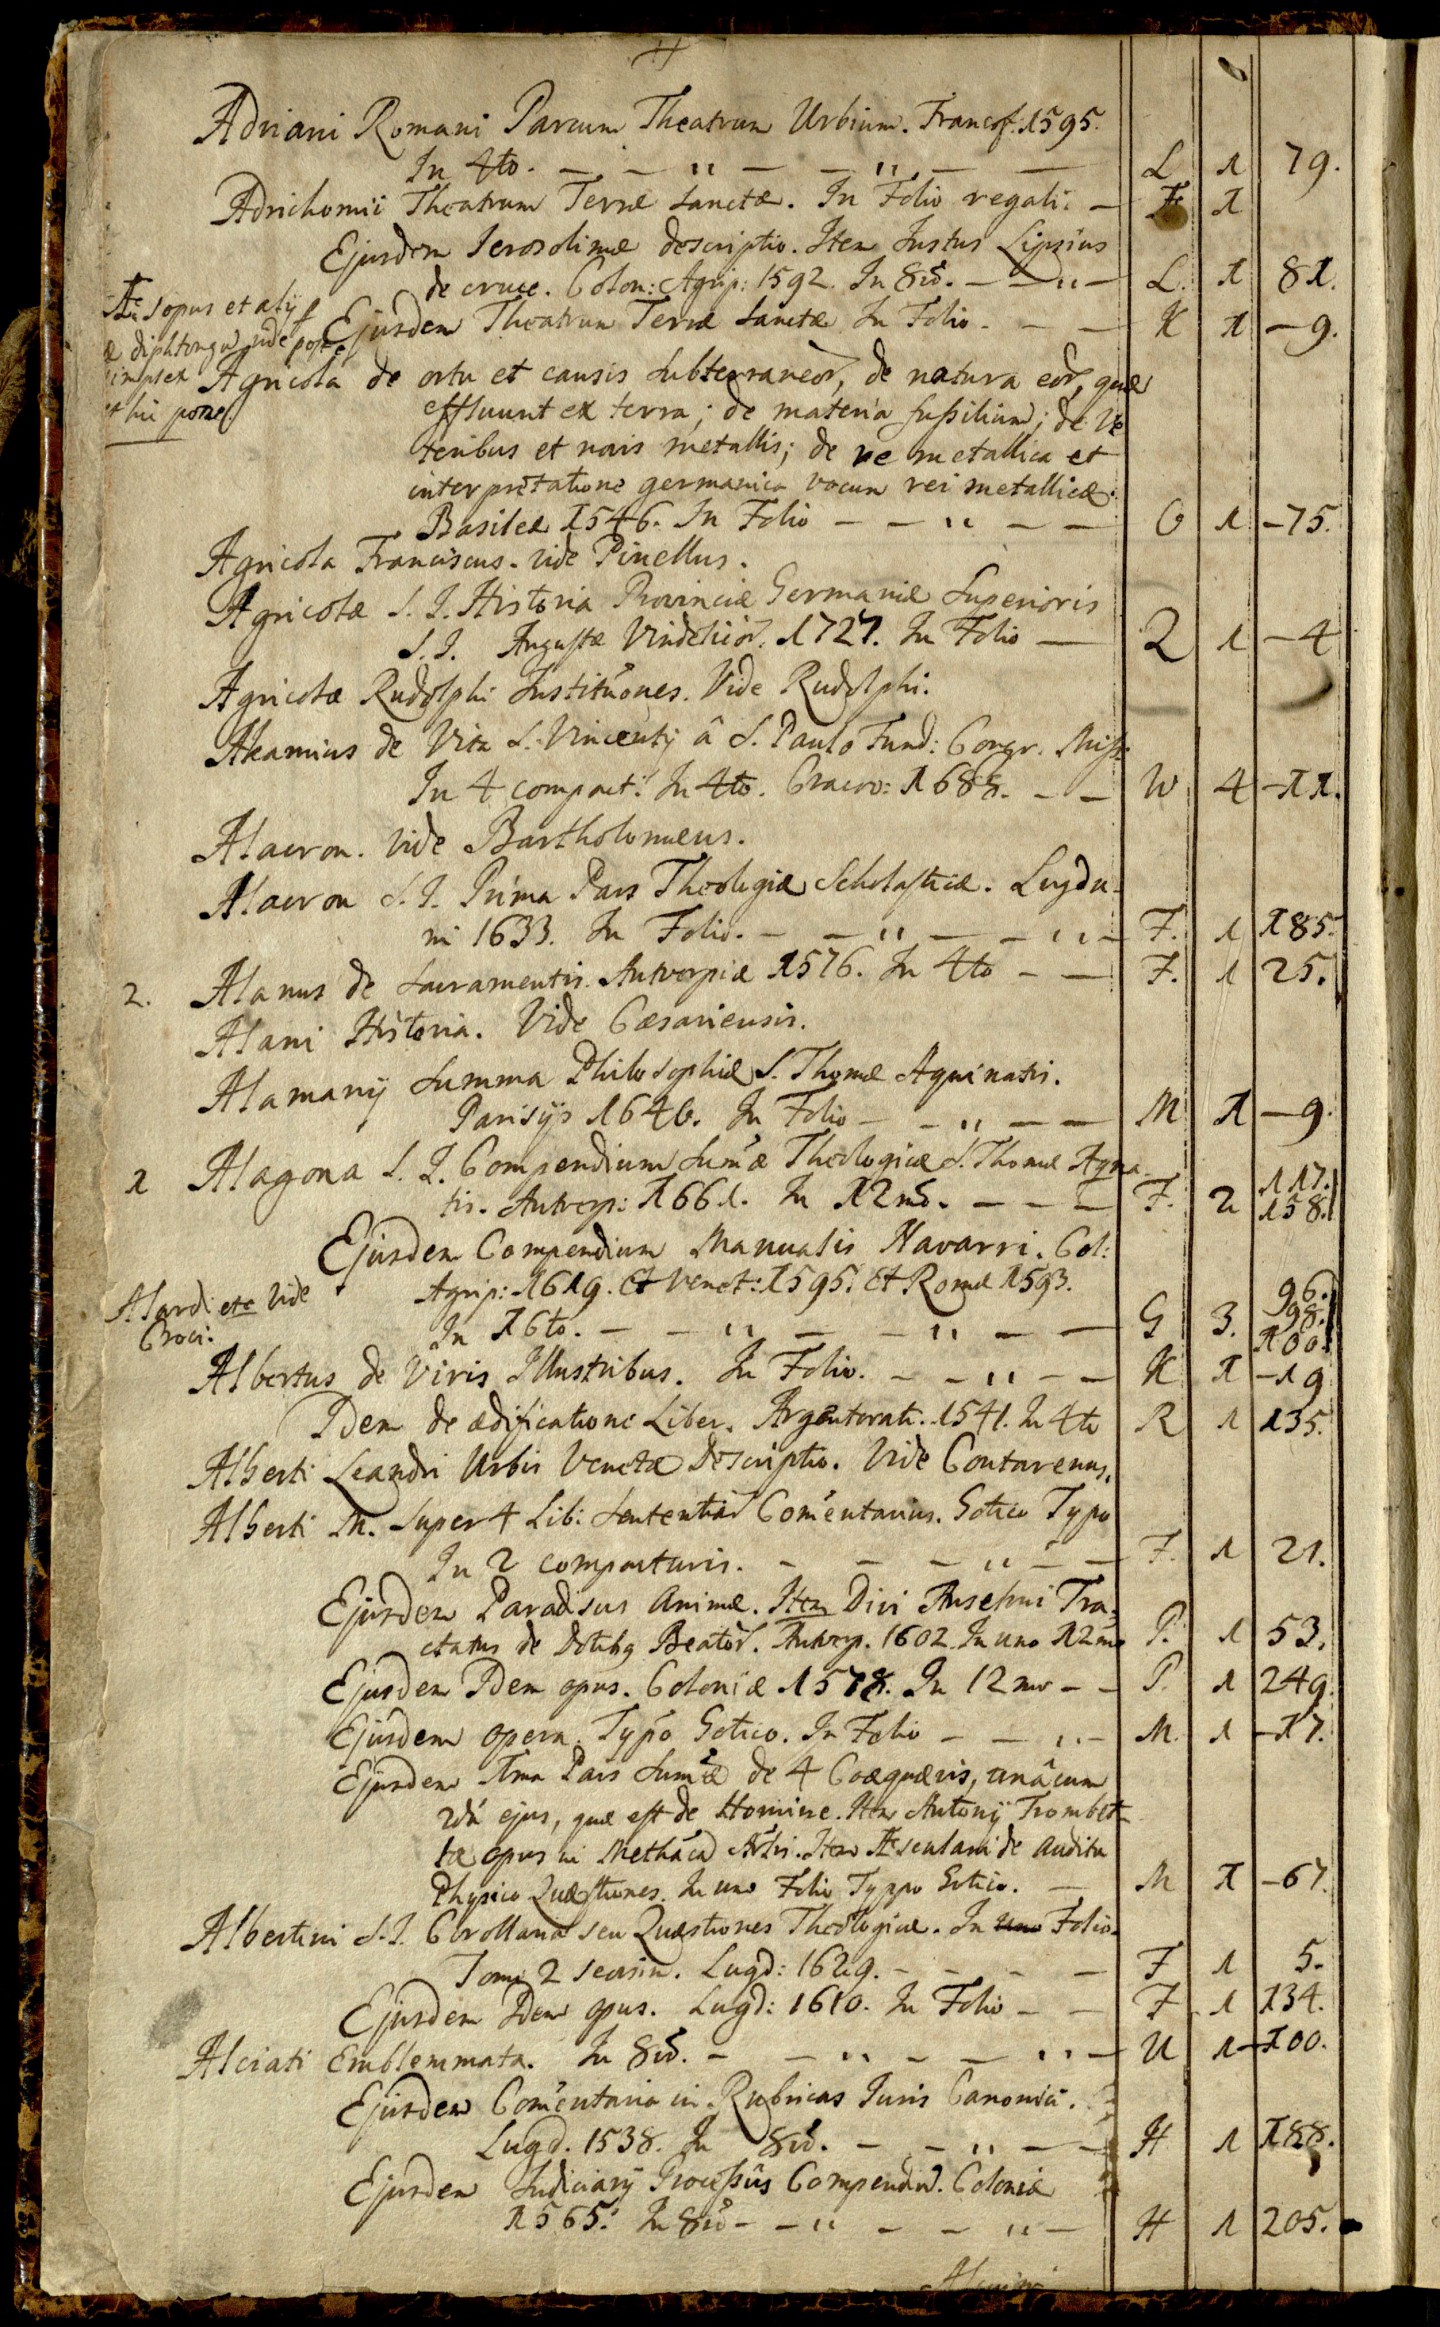 Adriani Romani Parvum Theatrum Urbium. Francof: 1595.
In 4to. — — " — — " — — L 1 79.
Adrichomii Theatrum Terræ Sanctæ. In Folio regali: — 1
Ejusdem Ierosolimæ descriptio. Item Justus Lipsius
de cruce. Colon: Agrip: 1592. In 8vo. — — " — L. 1 81.
Æsopus et alij
Ejusdem Theatrum Terræ Sanctæ In Folio. — — K 1 —9.
æ diphtongu vide post
simplex
et hic pone
Agricola de ortu et causis subterraneor, de natura eor, quæ
effluunt ex terra; de materia fussilium; de Ve
teribus et novis metallis; de re metallica et
interpretatione germanica vocum rei metallicæ.
Basileæ 1546. In Folio — — " — — O 1 —75.
Agricola Franciscus. vide Pinellus.
Agricolæ S. J. Historia Provinciæ Germaniæ Superioris
S. J. Augustæ Vindelicor. 1727. In Folio — Q 1 —4
Agricolæ Rudolphi Institu͠ones. Vide Rudolphi.
Akamius de Vita S. Vincentij â S. Paulo Fund: Congr. Miss:
In 4 compact: In 4to. Cracov: 1688. — — W 4 —11.
Alacron. vide Bartholomæus.
Alacron S. J. Prima Pars Theologiæ Scholasticæ. Lugdu-
ni 1633. In Folio. — — " — — " — F. 1 185.
2. Alanus de Sacramentis. Antverpiæ 1576. In 4to — — F. 1 25.
Alani Historia. Vide Cæsariensis.
Alamanij Summa Philosophiæ S. Thomæ Aquinatis.
Parisijs 1646. In Folio — — " — — M 1 —9.
1 Alagona S. J. Compendium Sum̃æ Theologicæ S. Thomæ Aqna-
tis. Antverp: 1661. In 12mo. — — — F. 2 117. 158.
Ejusdem Compendium Manualis Navarri. Col:
Agrip: 1619. Et Venet: 1595. Et Romæ 1593.
Alardi etc vide
Croci:
In 16to. — — " — — " — — G 3. 96. 98. 100.
Albertus de Viris Illustribus. In Folio. — — " — — K 1 —19
Idem de ædificatione Liber. Argentorati. 1541. In 4to R 1 135.
Alberti Leandri Urbis Venetæ Descriptio. Vide Contarenus.
Alberti M. Super 4 Lib: Sententiar Com̃entarius. Gotico Typo
In 2 compacturis. — — — " — — F. 1 21.
Ejusdem Paradisus Animæ. Item Divi Anselmi Tra-
ctatus de Dotibq Beator. Antverp. 1602. In uno 12mo P. 1 53.
Ejusdem Idem opus. Coloniæ 1578. In 12mo — — P. 1 249.
Ejusdem opera. Typo Gotico. In Folio — — " — M. 1 —17.
Ejusdem 1ma Pars Sum̃æ de 4 Coæquævis, unâcum
2dâ ejus, quæ est de Homine. Item Antonij Trombet-
tæ opus in Metháca Artis. Item Æsculani de Auditu
Physico Quæstiones. In uno Folio Typpo Gotico. — M 1 —67.
Albertini S. J. Corollaria seu Quæstiones Theologicæ. In uno Folio.
Tomi 2 seorsim. Lugd: 1629. — — — — F 1 5.
Ejusdem Idem opus. Lugd: 1610. In Folio — — F. 1 134.
Alciati Emblemmata. In 8vo. — — " — — " — U 1 —100.
Ejusdem Com̃entaria in Rubricas Juris Canonici.
Lugd. 1538. In 8vo. — — " — — H 1 188.
Ejusdem Judiciarij Processûs Compendiu. Coloniæ
1565. In 8vo — — " — — " — H 1 205.